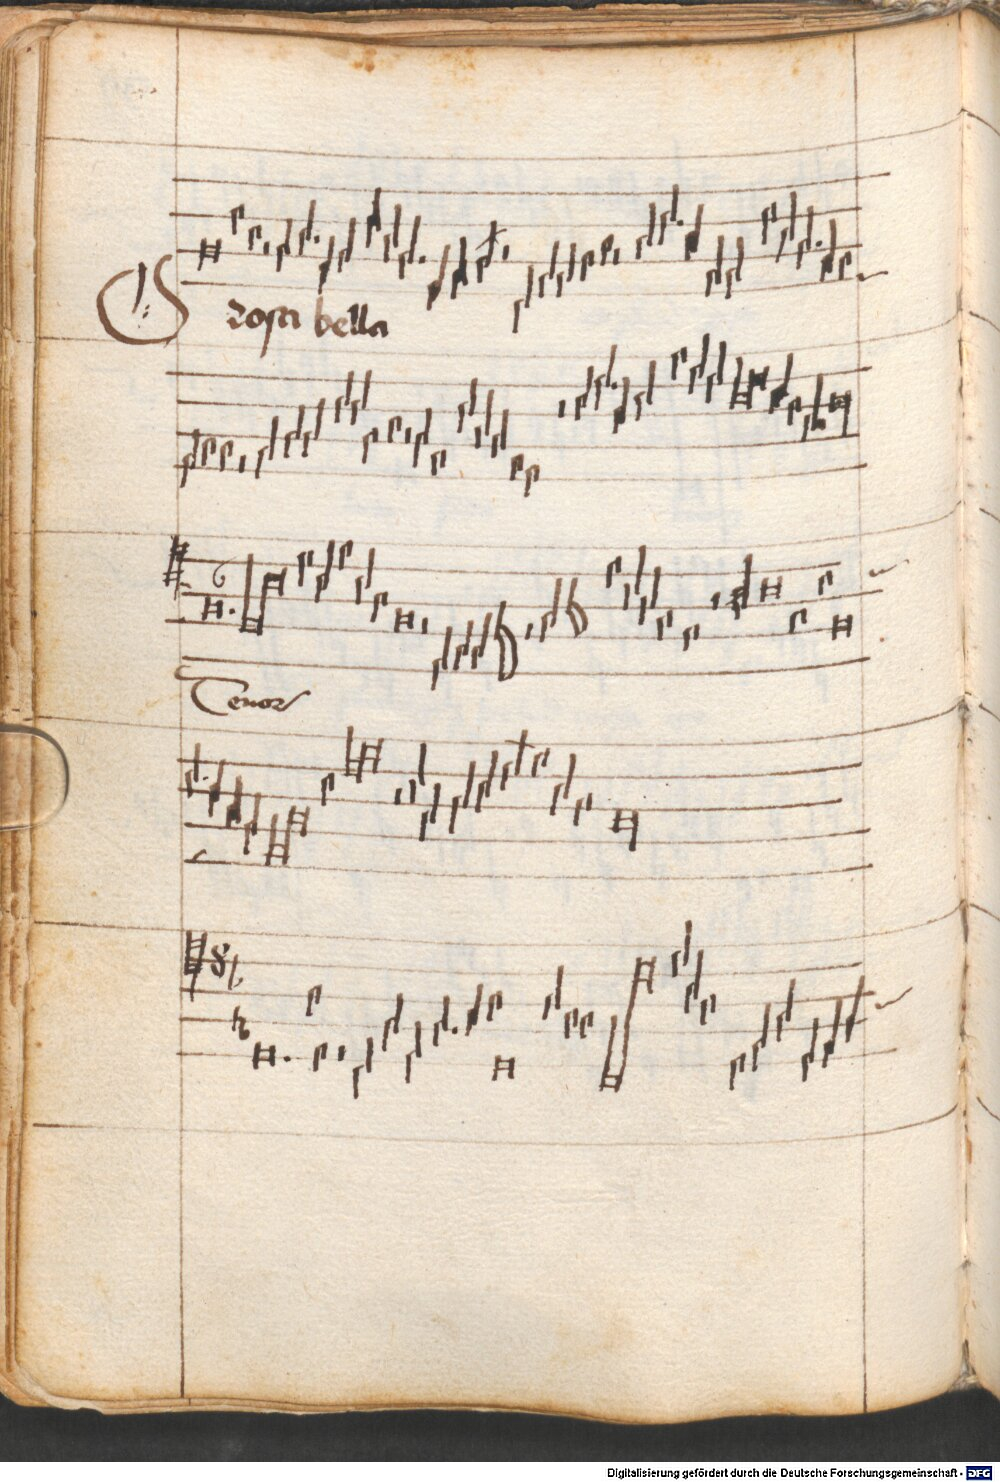 O rosa bella
Tenor
Digitalisierung gefördert durch die Deutsche Forschungsgemeinschaft - DFG